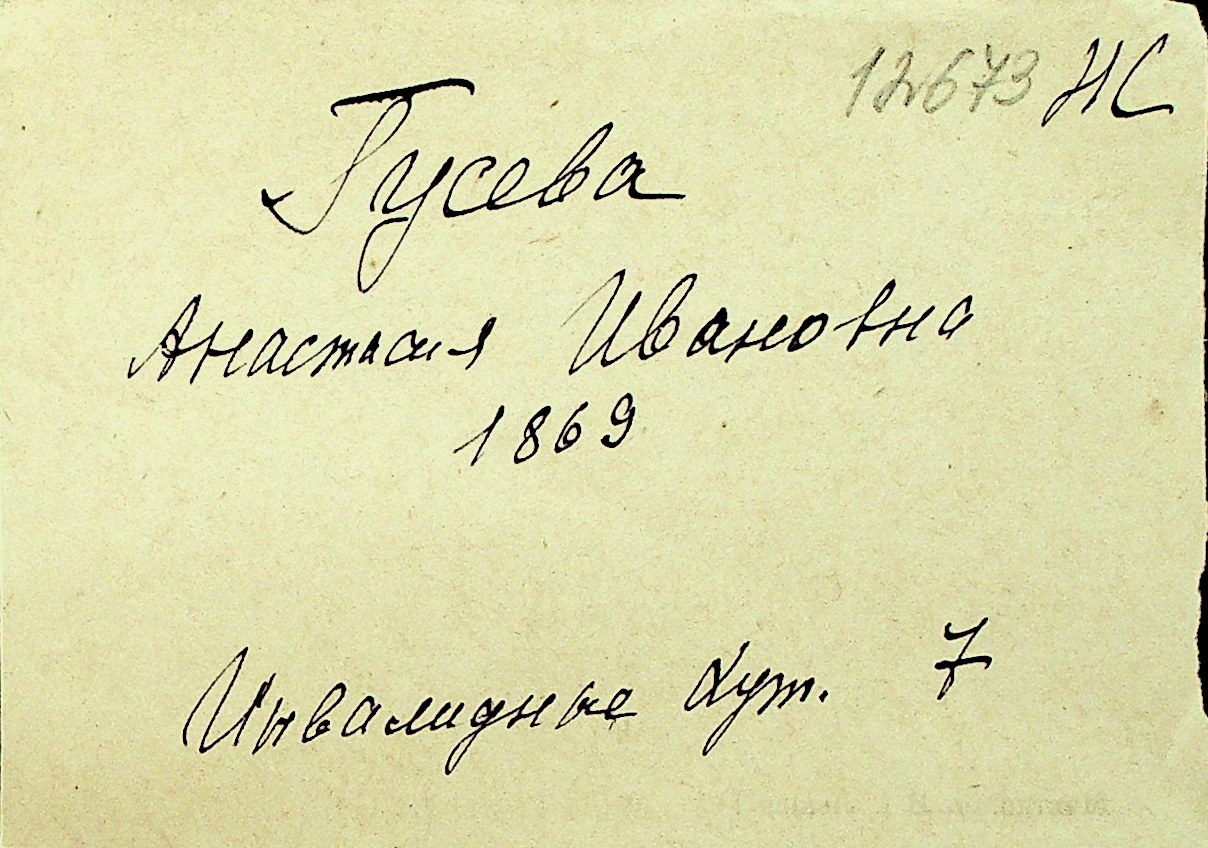 12673 НС
Гусева
Анастасия Ивановна
1869
Инвалидные хут. 7